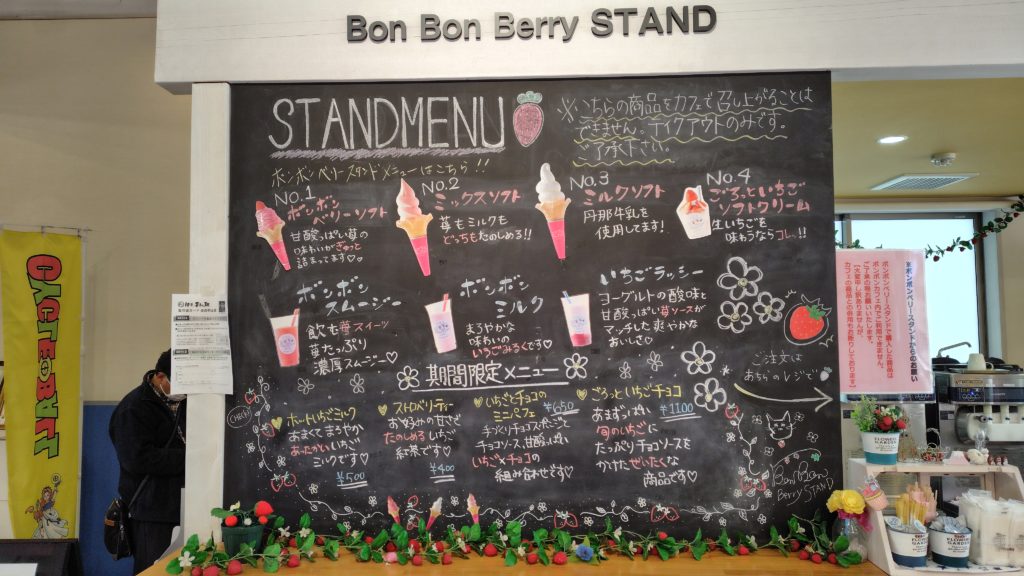 Bon Bon Berry STAND
STANDMENU
※こちらの商品をカフェで召し上がることは
できません。テイクアウトのみです。
ご了承下さい。
ボンボンベリースタンドメニューはこちら!!
No.1
ボンボン
ベリーソフト
甘酸っぱい苺の
味わいがぎゅっと
詰まってます♡
No.2
ミックスソフト
苺もミルクも
どっちもたのしめる!!
No.3
ミルクソフト
丹那牛乳を
使用してます!
No.4
ごろっといちご
ソフトクリーム
生いちごを
味わうならコレ!!
ボンボン
スムージー
飲む苺スイーツ
苺たっぷり
濃厚スムージー♡
ボンボン
ミルク
まろやかな
味わいの
いちごみるくです♡
いちごラッシー
ヨーグルトの酸味と
甘酸っぱい苺ソースが
マッチした爽やかな
おいしさ♡
期間限定メニュー
ホットいちごミルク
あまくまろやか
あったかいいちご
ミルクです♡
¥500
ストロベリティー
お好みの甘さで
たのしめるいちご
紅茶です♡
¥400
いちごとチョコの
ミニパフェ
¥650
チョコソース、甘酸っぱい
いちご×チョコの
組み合わせです♡
ごろっといちごチョコ
あまずっぱい
¥1100
旬のいちごに
たっぷりチョコソースを
かけたぜいたくな
商品です♡
ご注文は
あちらのレジで
Bon Bon
Berry STAND
CYCLE BALL
※ボンボンベリースタンドからのお願い
ボンボンベリースタンドで購入した商品は
ボンボンカフェでご利用できません。
ご了承の程お願いいたします。
【大変申し訳ありませんが
カフェの商品との併用もお断りしております】
FLOWER
GARDEN